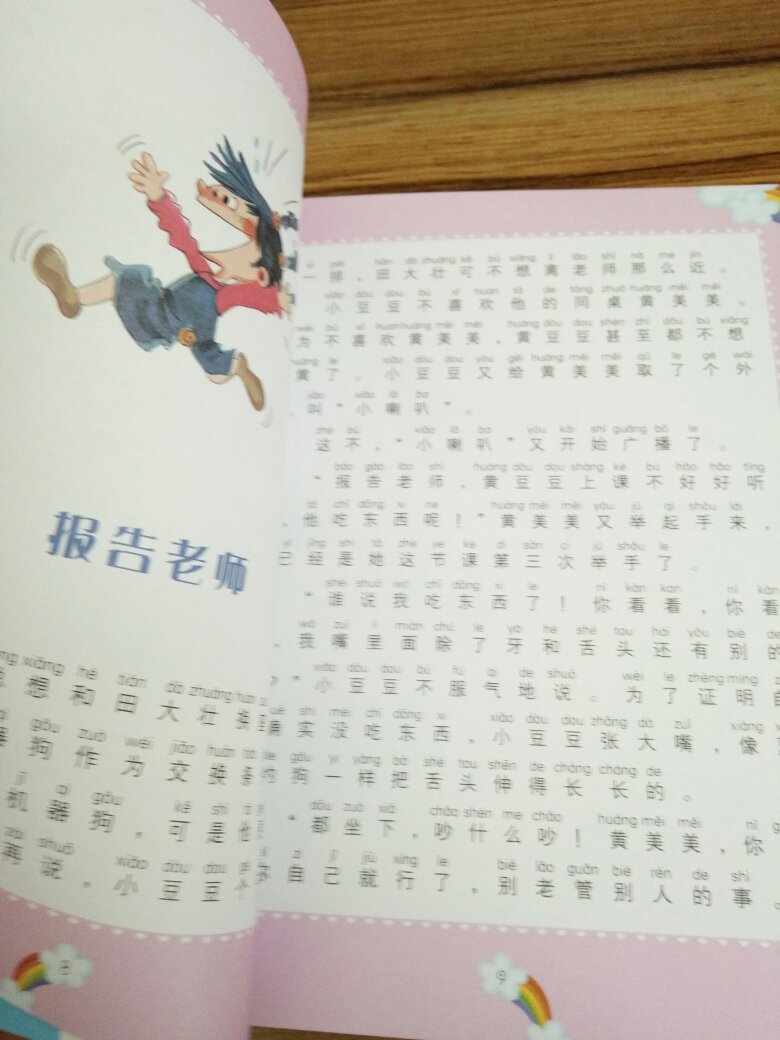 报告老师
想和田大壮换
器狗作为交换条
机器狗，可是他
再说，小豆豆个
8
yī pái tián dà zhuàng kě bù xiǎng lí lǎo shī nà me jìn
一排，田大壮可不想离老师那么近。
xiǎo dòu dou bù xǐ huan tā de tóng zhuō huáng měi měi
小豆豆不喜欢他的同桌黄美美。
wèi bù xǐ huan huáng měi měi huáng dòu dou shèn zhì dōu bù xiǎng
为不喜欢黄美美，黄豆豆甚至都不想
huáng le xiǎo dòu dou yòu gěi huáng měi měi qǔ le gè wài
黄了。小豆豆又给黄美美取了个外
jiào xiǎo lǎ ba
叫“小喇叭”。
zhè bù xiǎo lǎ ba yòu kāi shǐ guǎng bō le
这不，“小喇叭”又开始广播了。
bào gào lǎo shī huáng dòu dou shàng kè bù hǎo hǎo tīng
“报告老师，黄豆豆上课不好好听
tā chī dōng xi ne huáng měi měi yòu jǔ qǐ shǒu lái
他吃东西呢！”黄美美又举起手来，
yǐ jīng shì tā zhè jié kè dì sān cì jǔ shǒu le
已经是她这节课第三次举手了。
shéi shuō wǒ chī dōng xi le nǐ kàn kan nǐ kàn
“谁说我吃东西了！你看看，你看
wǒ zuǐ lǐ miàn chú le yá hé shé tou hái yǒu bié de
我嘴里面除了牙和舌头还有别的
xiǎo dòu dou bù fú qì de shuō wèi le zhèng míng
”小豆豆不服气地说。为了证明自
què shí méi chī dōng xi xiǎo dòu dou zhāng dà zuǐ xiàng
确实没吃东西，小豆豆张大嘴，像
gǒu yí yàng bǎ shé tou shēn de cháng cháng de
狗一样把舌头伸得长长的。
dōu zuò xià chǎo shén me chǎo huáng měi měi nǐ
“都坐下，吵什么吵！黄美美，你
zì jǐ jiù xíng le bié lǎo guǎn bié rén de shì
自己就行了，别老管别人的事。
9